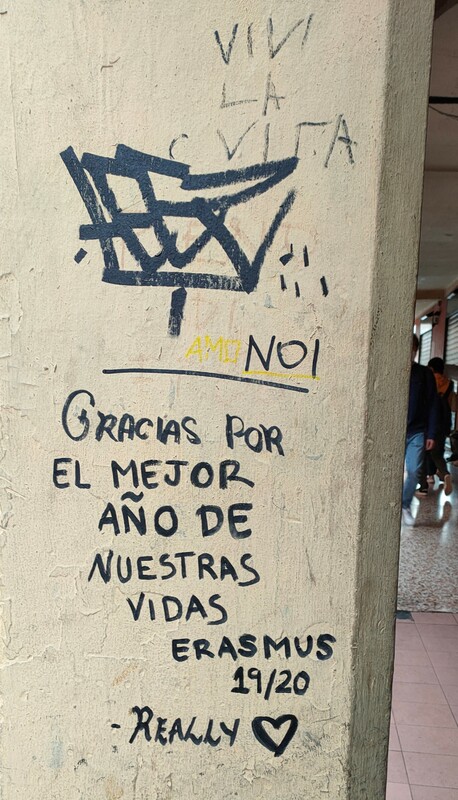 VIVI
LA
VITA
AMO NOI
GRACIAS POR
EL MEJOR
AÑO DE
NUESTRAS
VIDAS
ERASMUS
19/20
- REALLY ♡